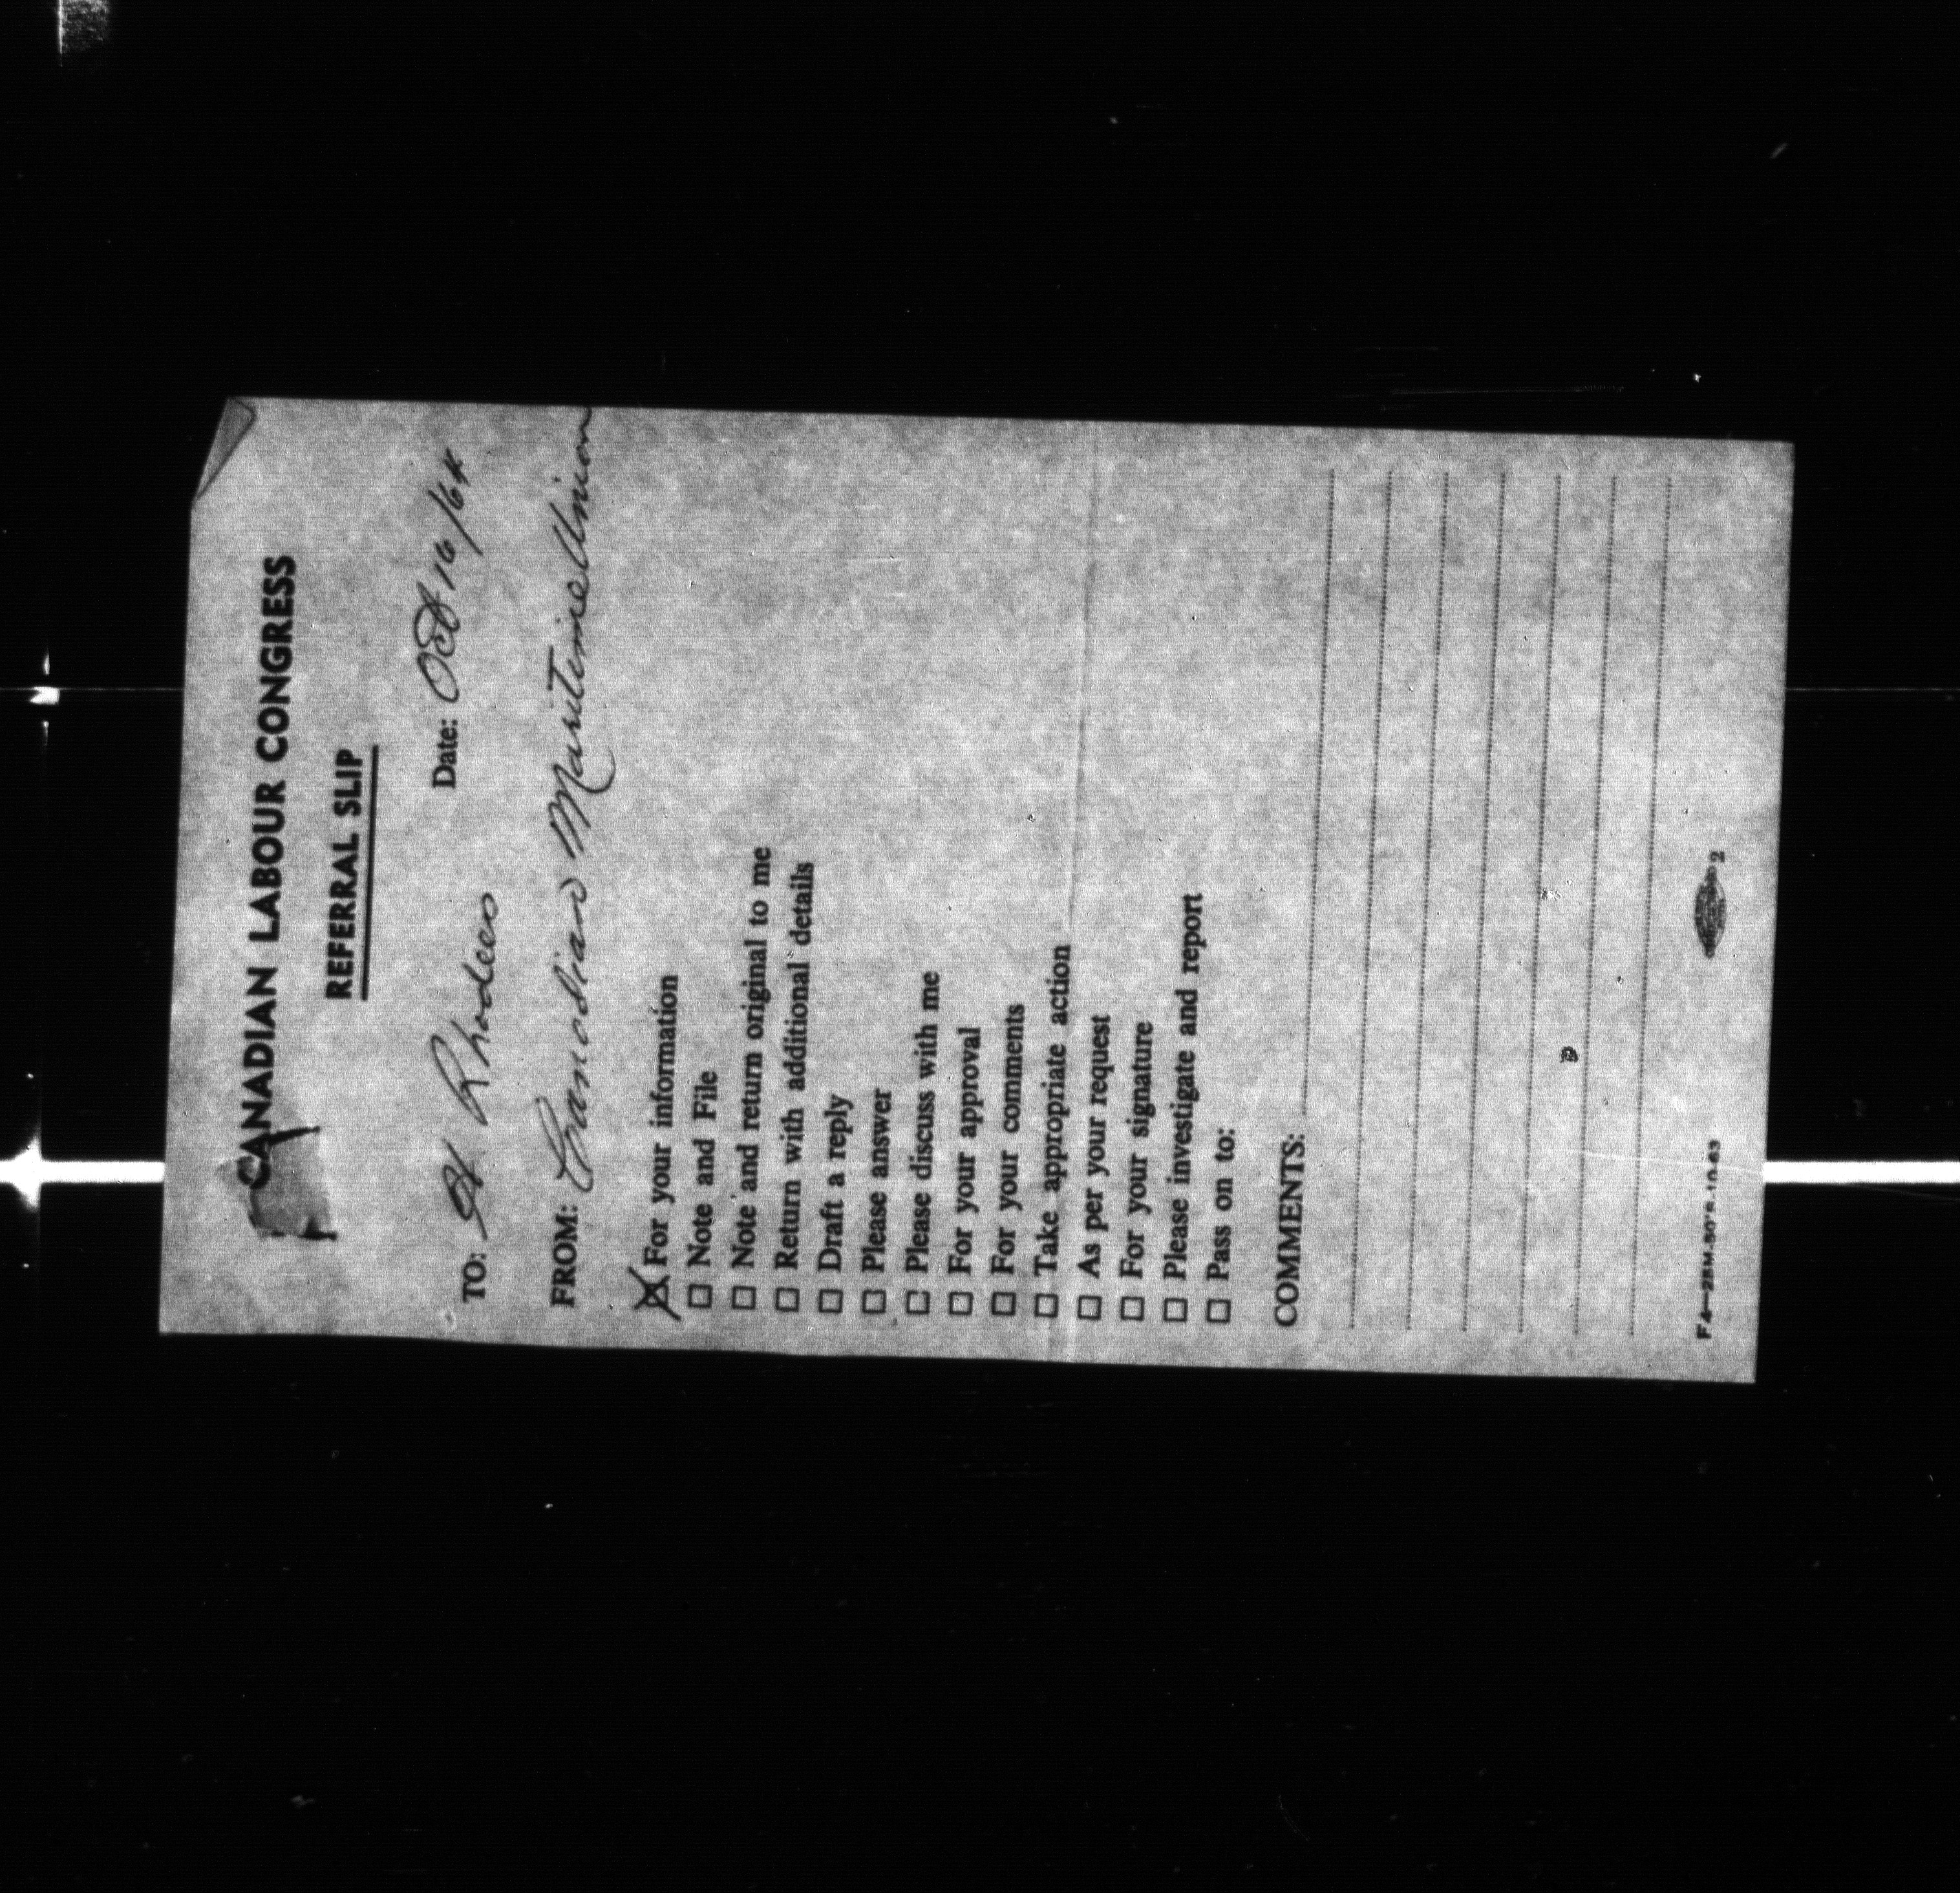 CANADIAN LABOUR CONGRESS
REFERRAL SLIP
TO: H Rhodes Date: Oct 16/64
FROM: Canadian Maritime Union
☒ For your information
☐ Note and File
☐ Note and return original to me
☐ Return with additional details
☐ Draft a reply
☐ Please answer
☐ Please discuss with me
☐ For your approval
☐ For your comments
☐ Take appropriate action
☐ As per your request
☐ For your signature
☐ Please investigate and report
☐ Pass on to:
COMMENTS:
F4—25M-50'S-10-63 2